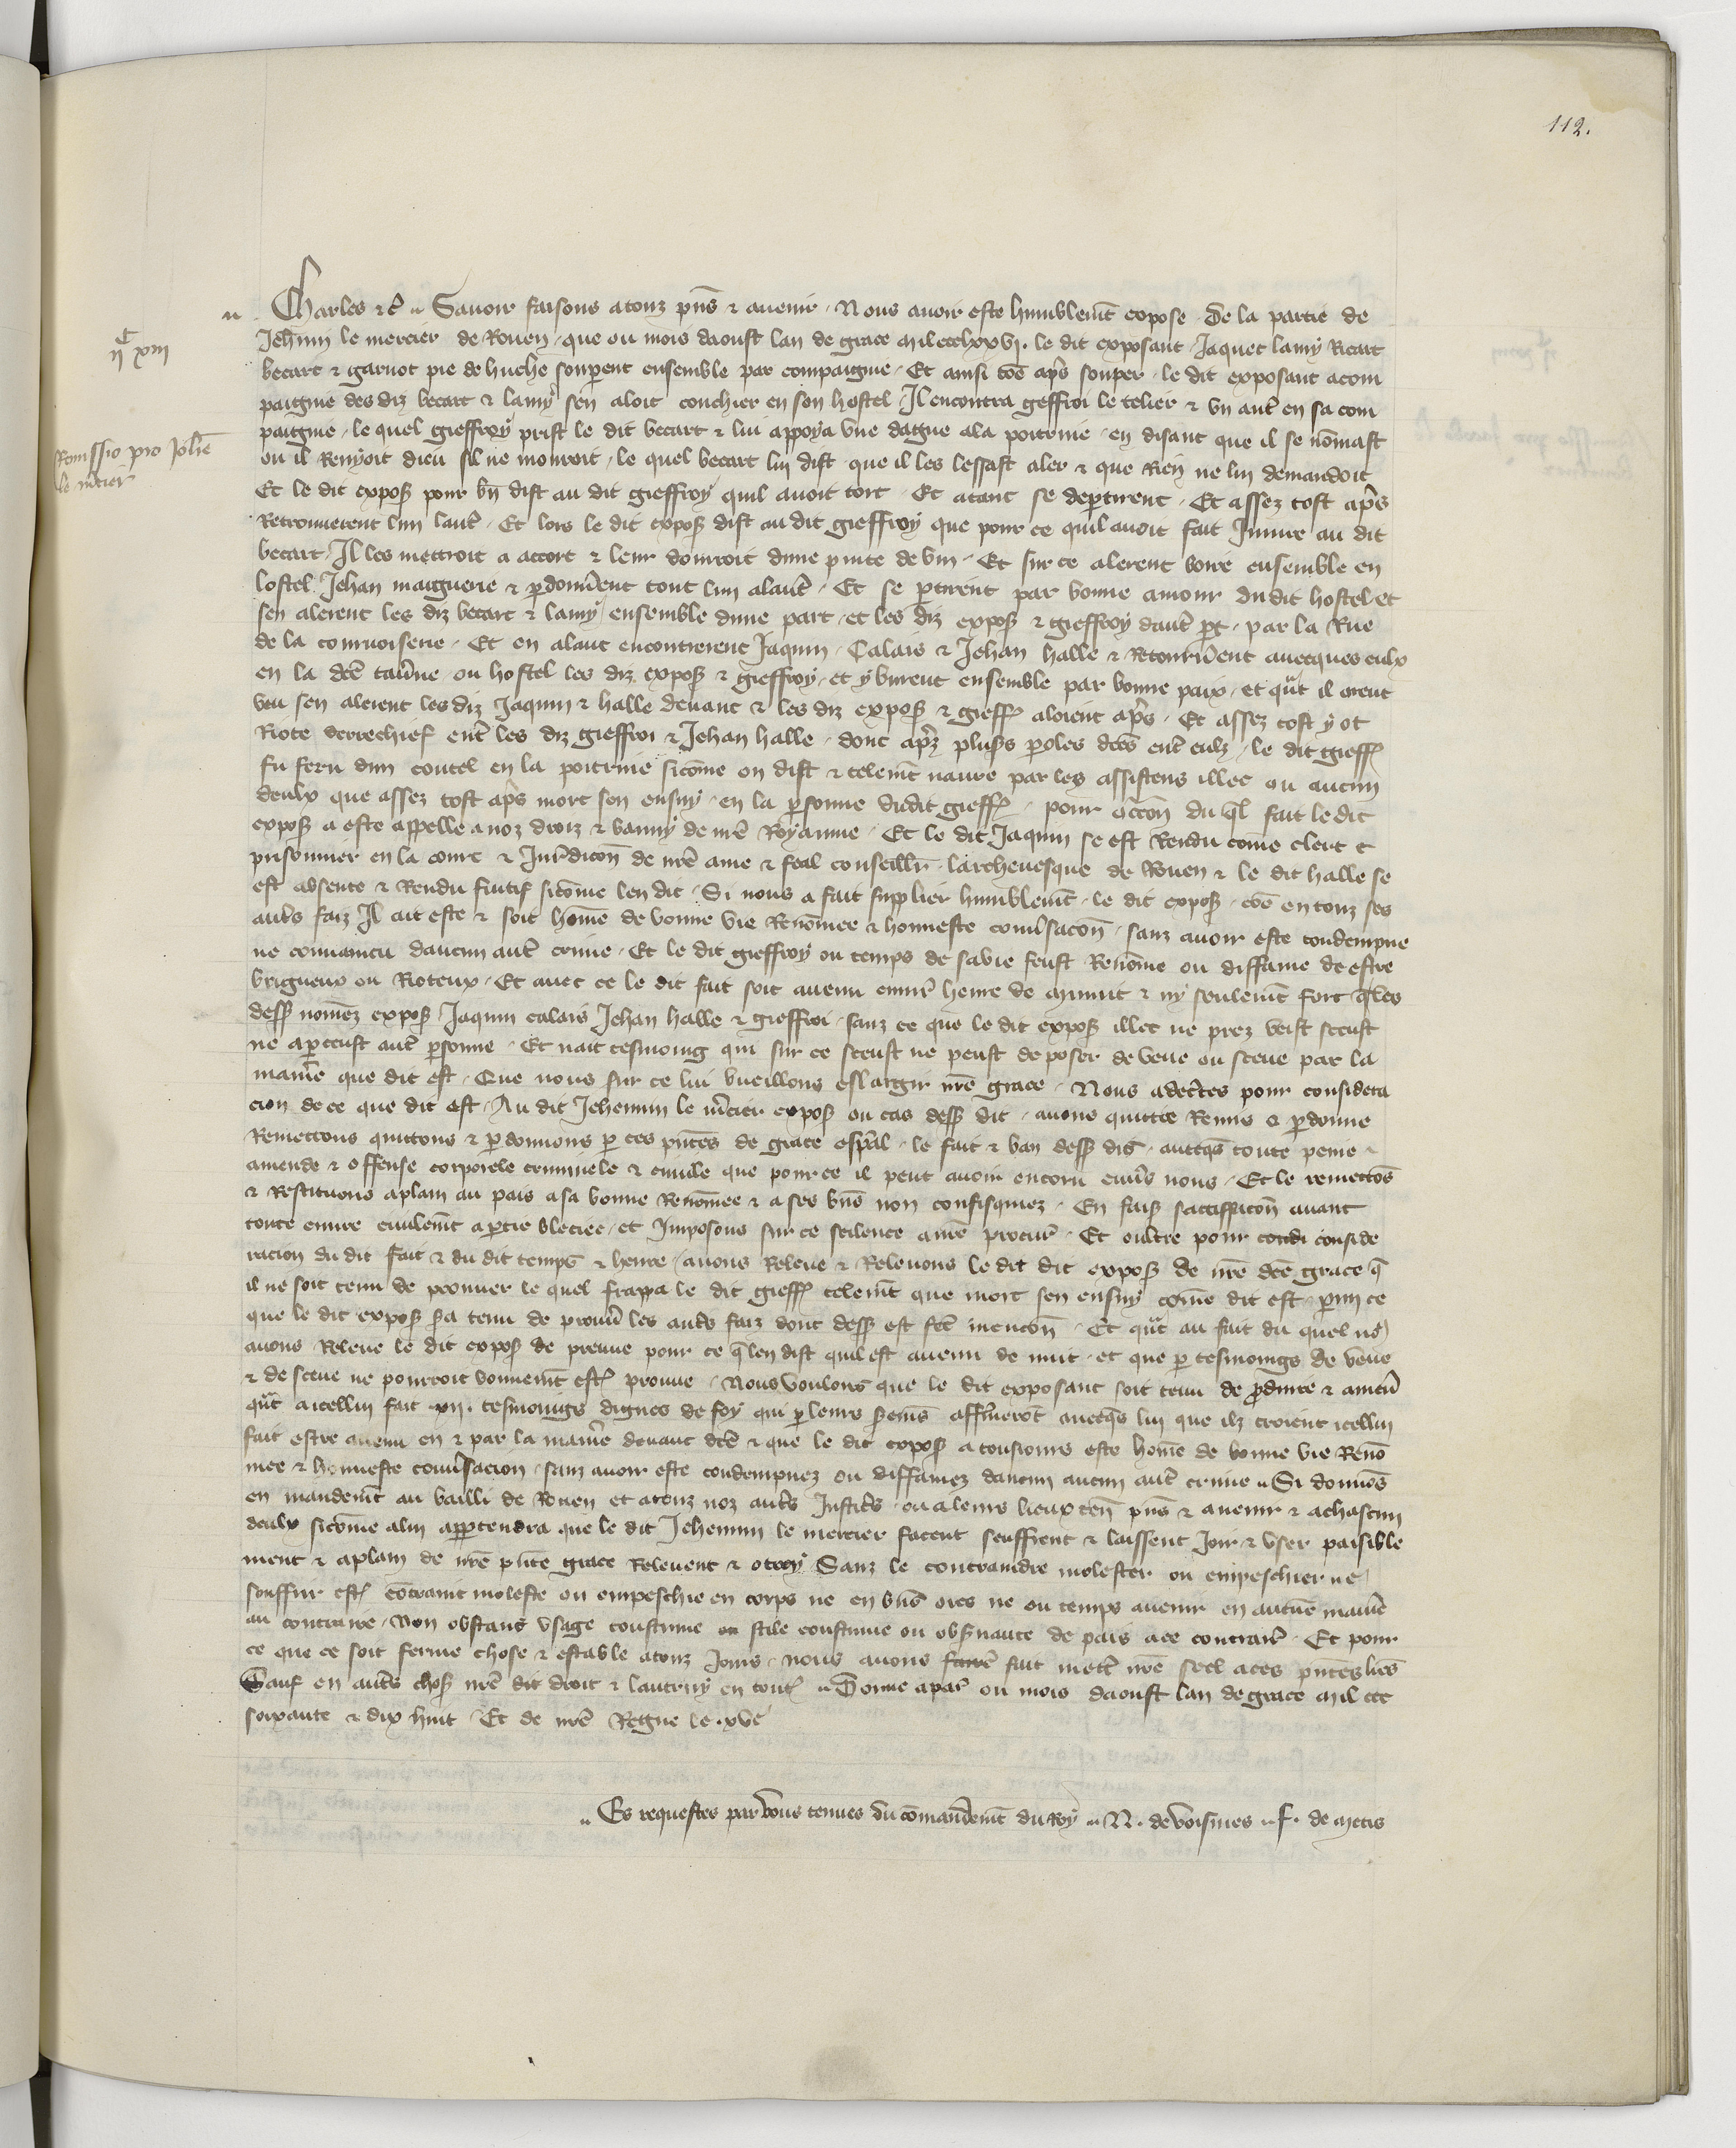 112.
Charles &c̃ Sauoir faisons a touz pñs & auenir Nous auoir este humblemẽt expose De la partie de
Jehñin le mercier de Rouen que ou mois daoust lan de grace mil ccclxxvj. le dit exposant Jaquet lamy Ricart
ii͛ xiii
becart & garnot pie de huche souperent ensemble par compaignie Et ainsi cõe ap̃s souper le dit exposant acom
paignie des diz becart & lamy sen aloit couchier en son hostel Il encontra geffroi le telier & vn autr̃ en sa com
paignie le quel gieffroy prist le dit becart & lui appoya vne dague ala poitrine en disant que il se nõmast
Remissio pro Johẽ
le m̃cier
ou il Renyoit dieu sil ne mouroit le quel becart lui dist que il les lessast aler & que Rien ne lui demandoit
Et le dit expos̃ pour bñ dist au dit gieffroy quil auoit tort Et atant se dep̱tirent Et assez tost ap̃s
Retrouuerent lun lautr̃ Et lors le dit expos̃ dist au dit gieffroy que pour ce quil auoit fait Iniure au dit
becart Il les mettroit a accort & leur donroit dune pinte de vin Et sur ce alerent boire ensemble en
lostel Jehan maiguerie & p̱donnerẽt tout lun alautr̃ Et se p̱tirent par bonne amour dudit hostel et
sen alerent les diz becart & lamy ensemble dune part et les diz expos̃ & gieffroy dautr̃ p̱t par la Rue
de la couruoiserie Et en alant encontrerent Jaquin Calais & Jehan halle & Retournerẽt auecques eulx
en la dc̃e tauerne ou hostel les diz expos̃ & gieffroy et y burent ensemble par bonne paix et qũt il orent
beu sen alerent les diz Jaquin & halle deuant & les diz expos̃ & gieff̃ aloient ap̃s Et assez tost y ot
Riote derrechief entr̃ les diz gieffroi & Jehan halle donc ap̃z pluss̃ p̱oles dc̃es entr̃ eulz le dit gieff̃
fu feru dun coutel en la poitrine sicõme on dist & telemẽt naure par les assistens illec ou aucun
deulx que assez tost ap̃s mort sen ensuy en la p̱sonne dudit gieff̃ pour occõn du q̃l fait le dit
expos̃ a este appelle a noz droiz & banny de nr̃e Royaume Et le dit Jaquin se est Rendu cõme clerc &
prisonnier en la court & Jur̃dicõn de nr̃e ame & feal conseillr̃ larcheuesque de Rouen & le dit halle se
est absente & Rendu fuitif sicõme len dit Si nous a fait supplier humblemẽt le dit expos̃ cõe en touz ses
autr̃s faiz Il ait este & soit hõme de bonne vie Renõmee & honneste conu̇sacõn sanz auoir este condempne
ne conuaincu daucun autr̃ crime Et le dit gieffroy ou temps de sa vie feust Renõme ou diffame de estre
brigueux ou Rioteux Et auec ce le dit fait soit auenu enuir̃ heure de minuit & ny seulemẽt fors q̃ les
dess̃ nõmez expos̃ Jaquin calais Jehan halle & gieffroi sanz ce que le dit expos̃ illec ne prez veist sceust
ne ap̱ceust autr̃ p̱sonne Et nait tesmoing qui sur ce sceust ne peust deposer de veue ou sceue par la
manir̃e que dit est Que nous sur ce lui vueillons eslargir nr̃e grace Nous adecertes pour considera
cion de ce que dit est Au dit Jehennin le m̃cier expos̃ ou cas dess̃ dit auons quittie Remis & p̱donne
Remettons quittons & p̱donnons p̱ ces pñtes de grace esp̃al le fait & ban dess̃ dis auecq̃s toute peine
amende & offense corporele criminele & ciuile que pour ce il peut auoir encoru enu̇s nous Et le remettõs
& Restituons aplain au pais a sa bonne Renõmee & a ses biẽs non confisquiez En fais̃ sattiffacõn auant
toute euure ciuilemẽt a p̱tie bleciee et Imposons sur ce scilence a nr̃e procur̃ Et oultre pour condi conside
racion du dit fait & du dit temps & heure auons Releue & Releuons le dit dit expos̃ de nr̃e dc̃e grace q̃
il ne soit tenu de prouuer le quel frappa le dit gieff̃ telemẽt que mort sen ensuy cõme dit est p̱mi ce
que le dit expos̃ sa tenu de prouu̇ les autr̃s faiz dont dess̃ est fc̃e mencõn Et qũt au fait du quel no9
auons Releue le dit expos̃ de preuue pour ce q̃ len dist quil est auenu de nuit et que p̱ tesmoings de veue
& de sceue ne pourroit bonnemẽt estr̃ prouue Nous voulons que le dit exposant soit tenu de p̱duire & amen̉
qũt a icellui fait xii. tesmoings dignes de foy qui p̱ leurs s̃emẽs affermerõt auecq̃s lui que ilz croient icellui
fait estre auenu en & par la manir̃e deuant dc̃e & que le dit expos̃ a tousiours este hõme de bonne vie Renõ
mee & honneste conu̇sacion sanz auoir este condempnez ou diffamez daucun aucun autr̃ crime Si donnõs
en mandemẽt au bailli de Rouen et a touz noz autr̃s Justic̃s ou a leurs lieux teñ pñs & auenir & a chascun
deulx sicõme a lui app̱tendra que le dit Jehennin le mercier facent seuffrent & laissent Joir & vser paisible
ment & aplain de nr̃e pñte grace Releuent & otroy Sanz le contraindre molester ou empeschier ne
souffrir estr̃ cõtraint moleste ou empeschie en corps ne en biẽs ores ne ou temps auenir en aucune manir̃e
au contraire Non obstans vsage coustume ou stile coustume ou obs̃uance de pais a ce contrair̃ Et pour
ce que ce soit ferme chose & estable a touz Jours nous auons faire fait mettr̃ nr̃e seel a ces pñtes lr̃es
Sauf en autr̃s chos̃ nr̃e dit droit & lautruy en tout̃ Donne a par̃ ou mois daoust lan de grace mil ccc
soixante & dix huit Et de nr̃e Regne le xve
Es requestes par vous tenues du cõmandemẽt du Roy N. de voisines f. de metis